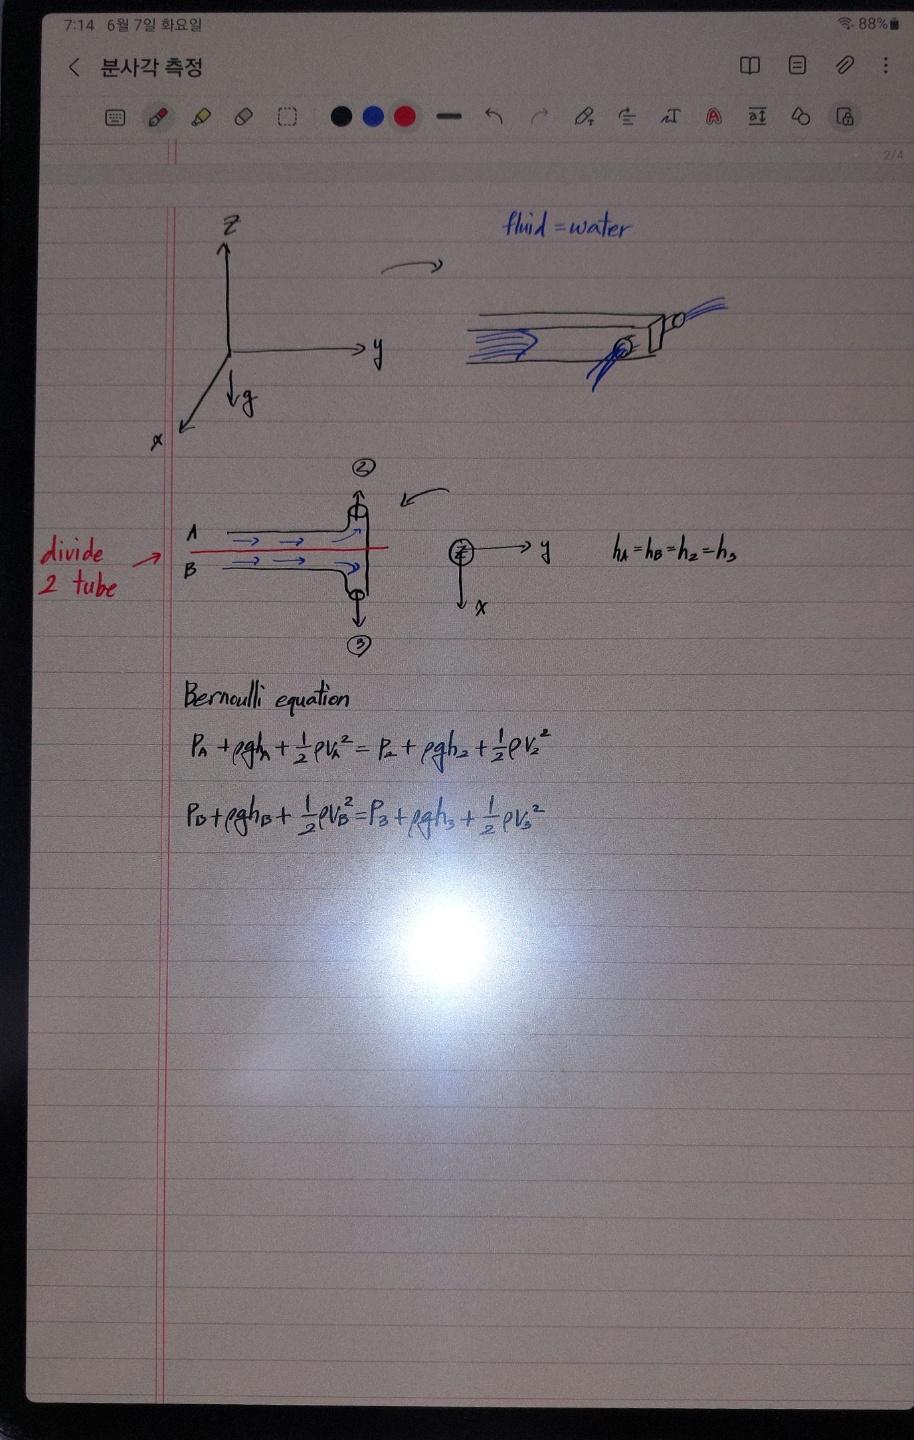 7:14 6월 7일 화요일
88%
분사각 측정
2/4
z
fluid = water
y
g
x
②
A
divide
2 tube
B
z
y
h_A = h_B = h_2 = h_3
x
③
Bernoulli equation
P_A + ρgh_A + 1/2 ρv_A² = P_2 + ρgh_2 + 1/2 ρv_2²
P_B + ρgh_B + 1/2 ρv_B² = P_3 + ρgh_3 + 1/2 ρv_3²